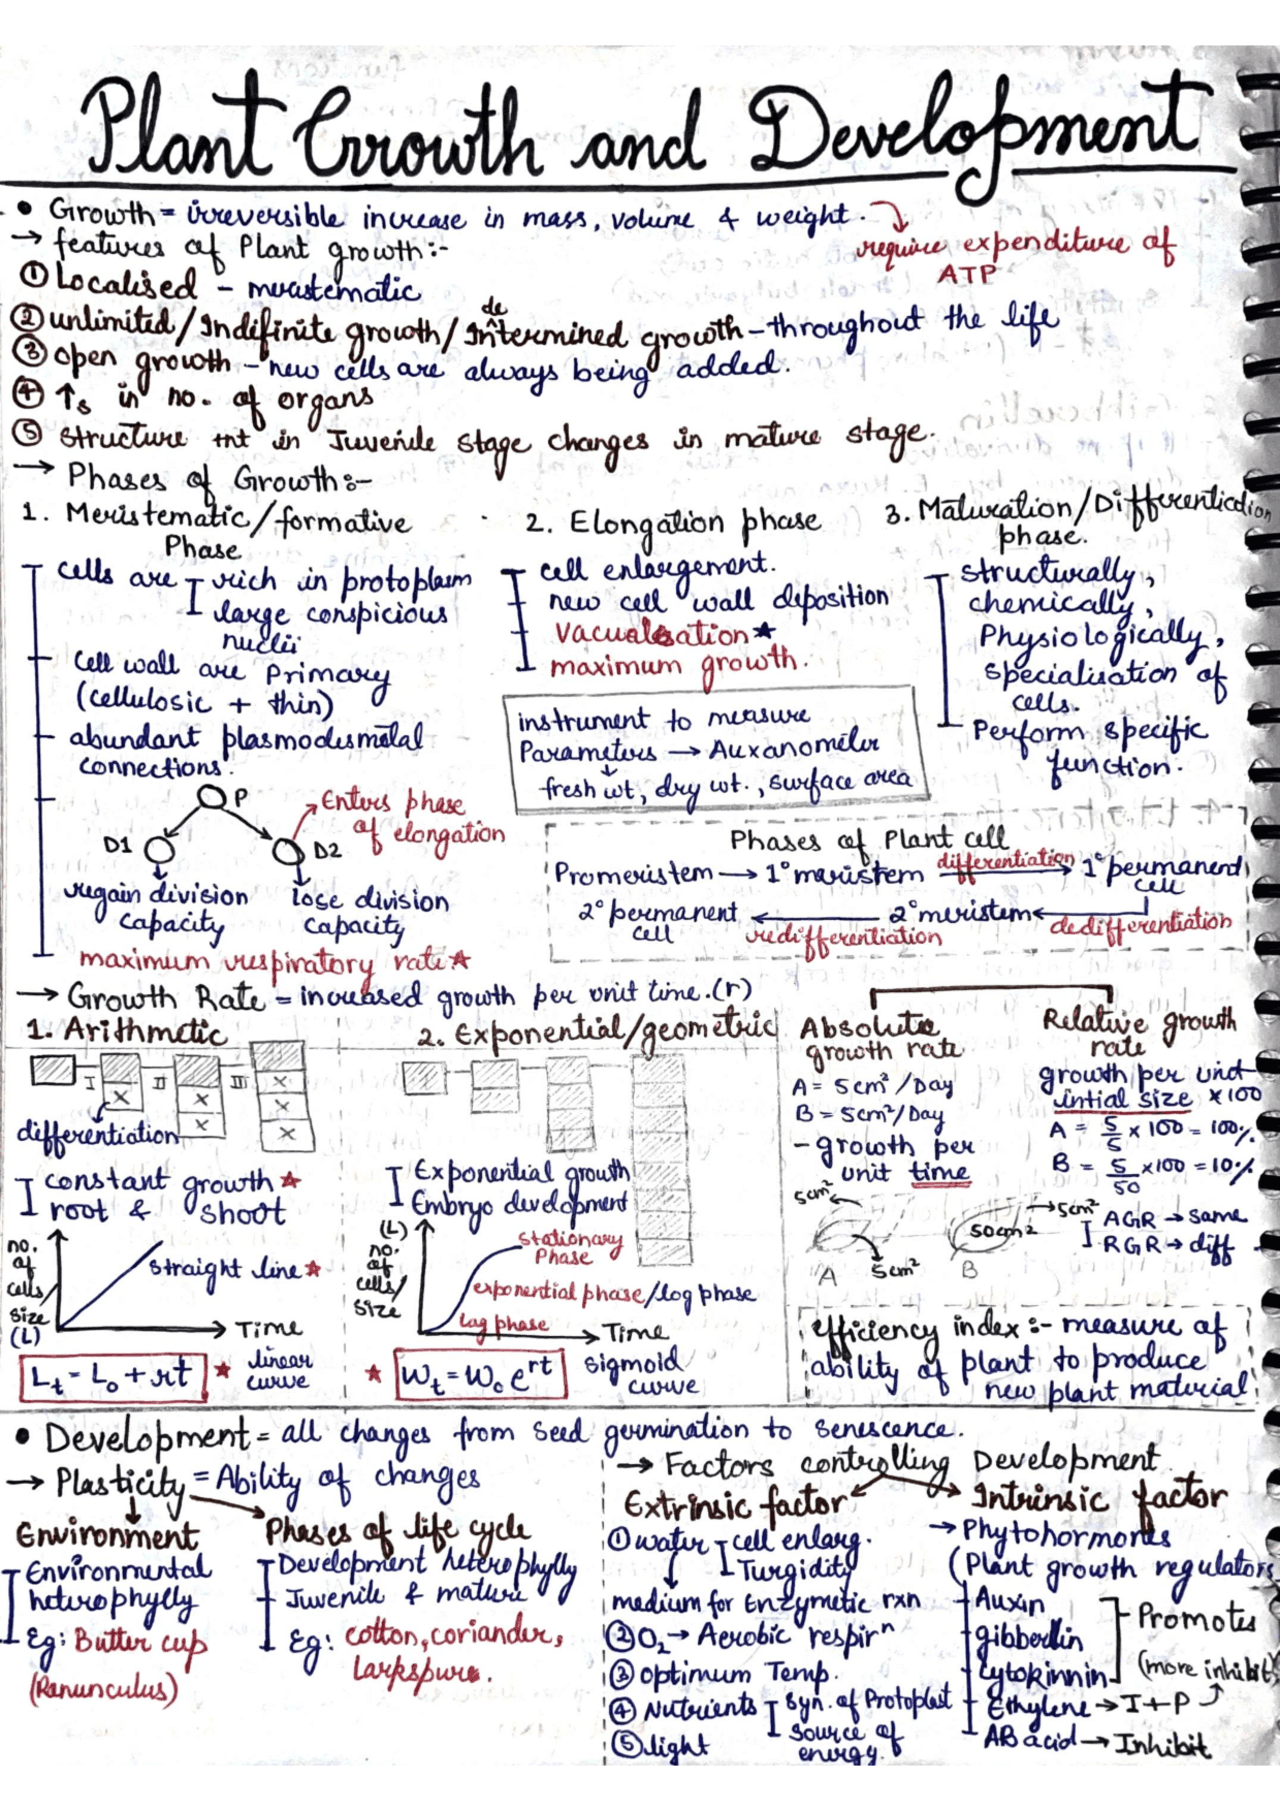 Plant Growth and Development
• Growth = irreversible increase in mass, volume & weight.
require expenditure of ATP
→ features of Plant growth:-
① Localised - merastematic
② unlimited/Indefinite growth/Indetermined growth - throughout the life
③ open growth - new cells are always being added.
④ ↑s in no. of organs
⑤ structure tnt in Juvenile stage changes in mature stage.
→ Phases of Growth:-
1. Meristematic/formative Phase
cells are
rich in protoplasm
large conspicious nuclii
Cell wall are primary
(cellulosic + thin)
abundant plasmodesmetal connections.
P
D1
D2
Enters phase of elongation
regain division capacity
lose division capacity
maximum respiratory rate ★
2. Elongation phase
cell enlargement.
new cell wall diposition
Vacualisation ★
maximum growth.
3. Maturation/Differentiation phase.
structurally,
chemically,
Physiologically,
specialisation of cells.
Perform specific function.
instrument to measure
Parameters → Auxanometer
fresh wt, dry wt., surface area
Phases of Plant cell
Promeristem → 1° meristem differentiation → 1° permanent cell
2° permanent cell ← redifferentiation 2° meristem ← dedifferentiation
→ Growth Rate = increased growth per unit time.(r)
1. Arithmetic
I II III
x
x x
x x x
differentiation
constant growth ★
root & shoot
no. of cells/size (L)
straight line ★
→ Time
Lt = L0 + rt ★ linear curve
2. Exponential/geometric
Exponential growth
Embryo development
(L)
no. of cells/size
stationary Phase
exponential phase/log phase
lag phase
→ Time
★ Wt = W0 e^rt sigmoid curve
Absolute growth rate
A = 5cm²/Day
B = 5cm²/Day
- growth per unit time
Relative growth rate
growth per unit intial size x100
A = 5/5 x 100 = 100%
B = 5/50 x100 = 10%
5cm²
5cm²
A
50cm²
5cm²
B
AGR → same
RGR → diff
efficiency index :- measure of
ability of plant to produce
new plant material
• Development = all changes from seed germination to senescence.
→ Plasticity = Ability of changes
Environment
Environmental heterophylly
Eg: Butter cup
(Ranunculus)
Phases of life cycle
Development heterophylly
Juvenile & mature
Eg: cotton, coriander, Larkspur.
→ Factors controlling Development
Extrinsic factor
① water
cell enlarg.
Turgidity
medium for Enzymetic rxn
② O2 → Aerobic respirⁿ
③ optimum Temp.
④ Nutrients
syn. of Protoplast
source of energy.
⑤ light
Intrinsic factor
→ Phytohormones
(Plant growth regulators
Auxin
gibberlin
cytokinnin
Promotes
(more inhibit)
Ethylene → I+P
AB acid → Inhibit